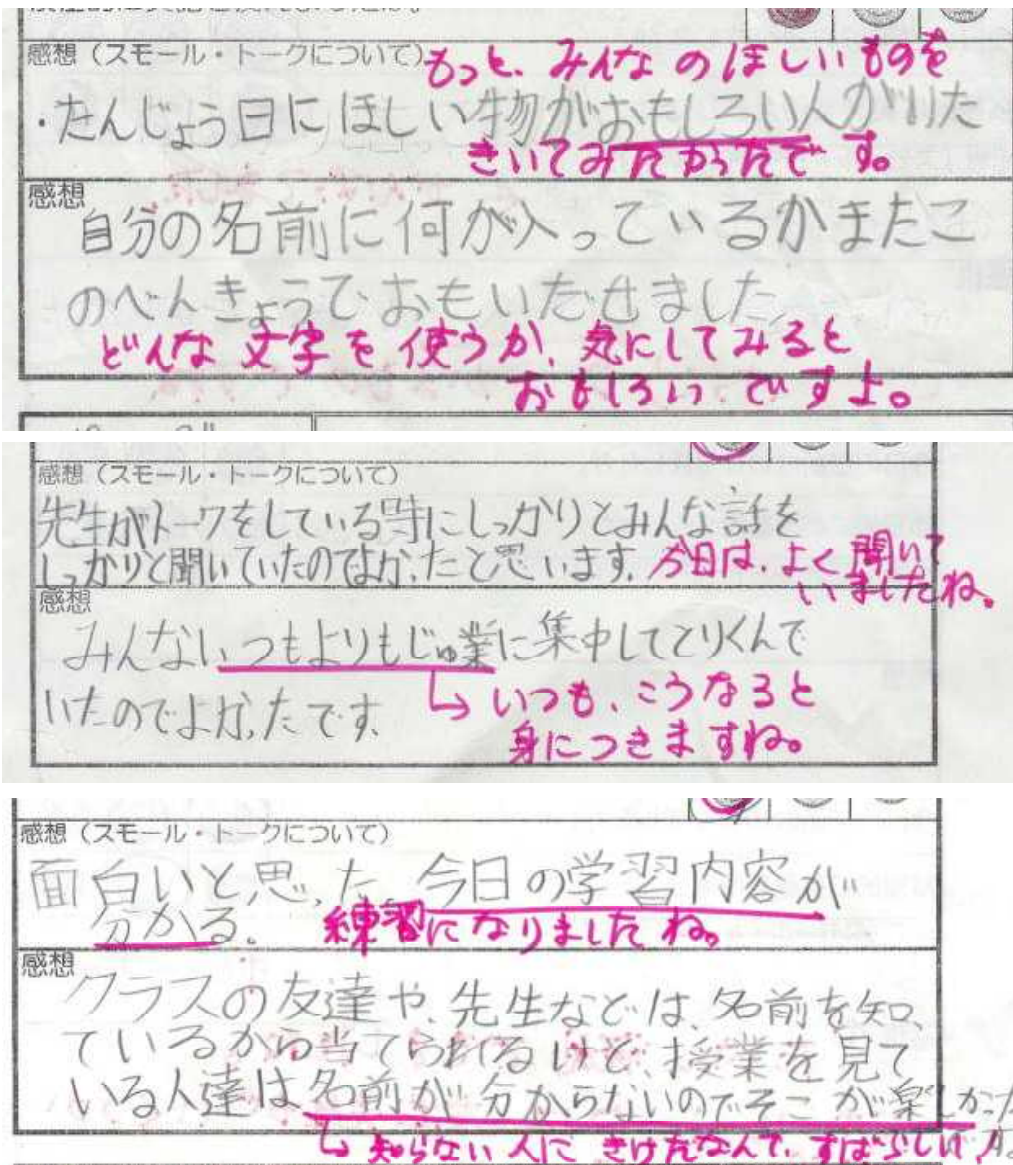 感想（スモール・トークについて）
もっと、みんなのほしいものを
・たんじょう日にほしい物がおもしろい人がいた
きいてみたかったです。
感想
自分の名前に何が入っているかまたこ
のべんきょうでおもいだせました。
どんな文字を使うか、気にしてみると
おもしろいですよ。
感想（スモール・トークについて）
先生がトークをしている時にしっかりとみんな話を
しっかりと聞いていたのでよかったと思います。
今日は、よく聞いて
いましたね。
感想
みんないつもよりもじゅ業に集中してとりくんで
いたのでよかったです。
↳いつも、こうなると
身につきますね。
感想（スモール・トークについて）
面白いと思った。今日の学習内容が
分かる。
練習になりましたね。
感想
クラスの友達や、先生などは、名前を知っ
ているから当てられるけど、授業を見て
いる人達は名前が分からないのでそこが楽しかった
↳知らない人にきけたなんて、すばらしい